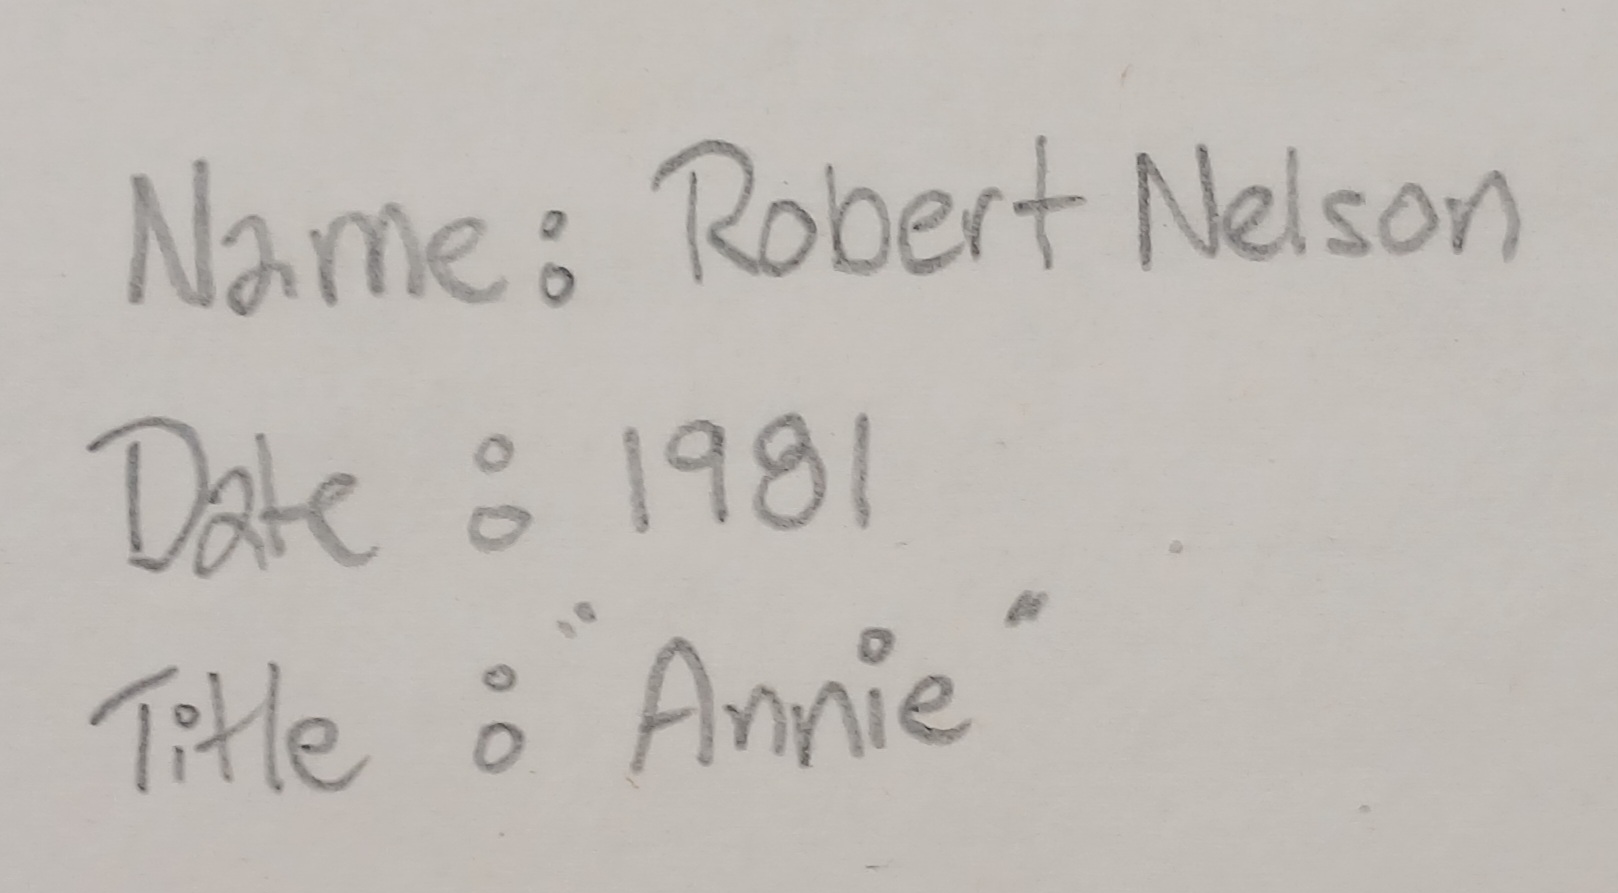 Name: Robert Nelson
Date : 1981
Title : "Annie"